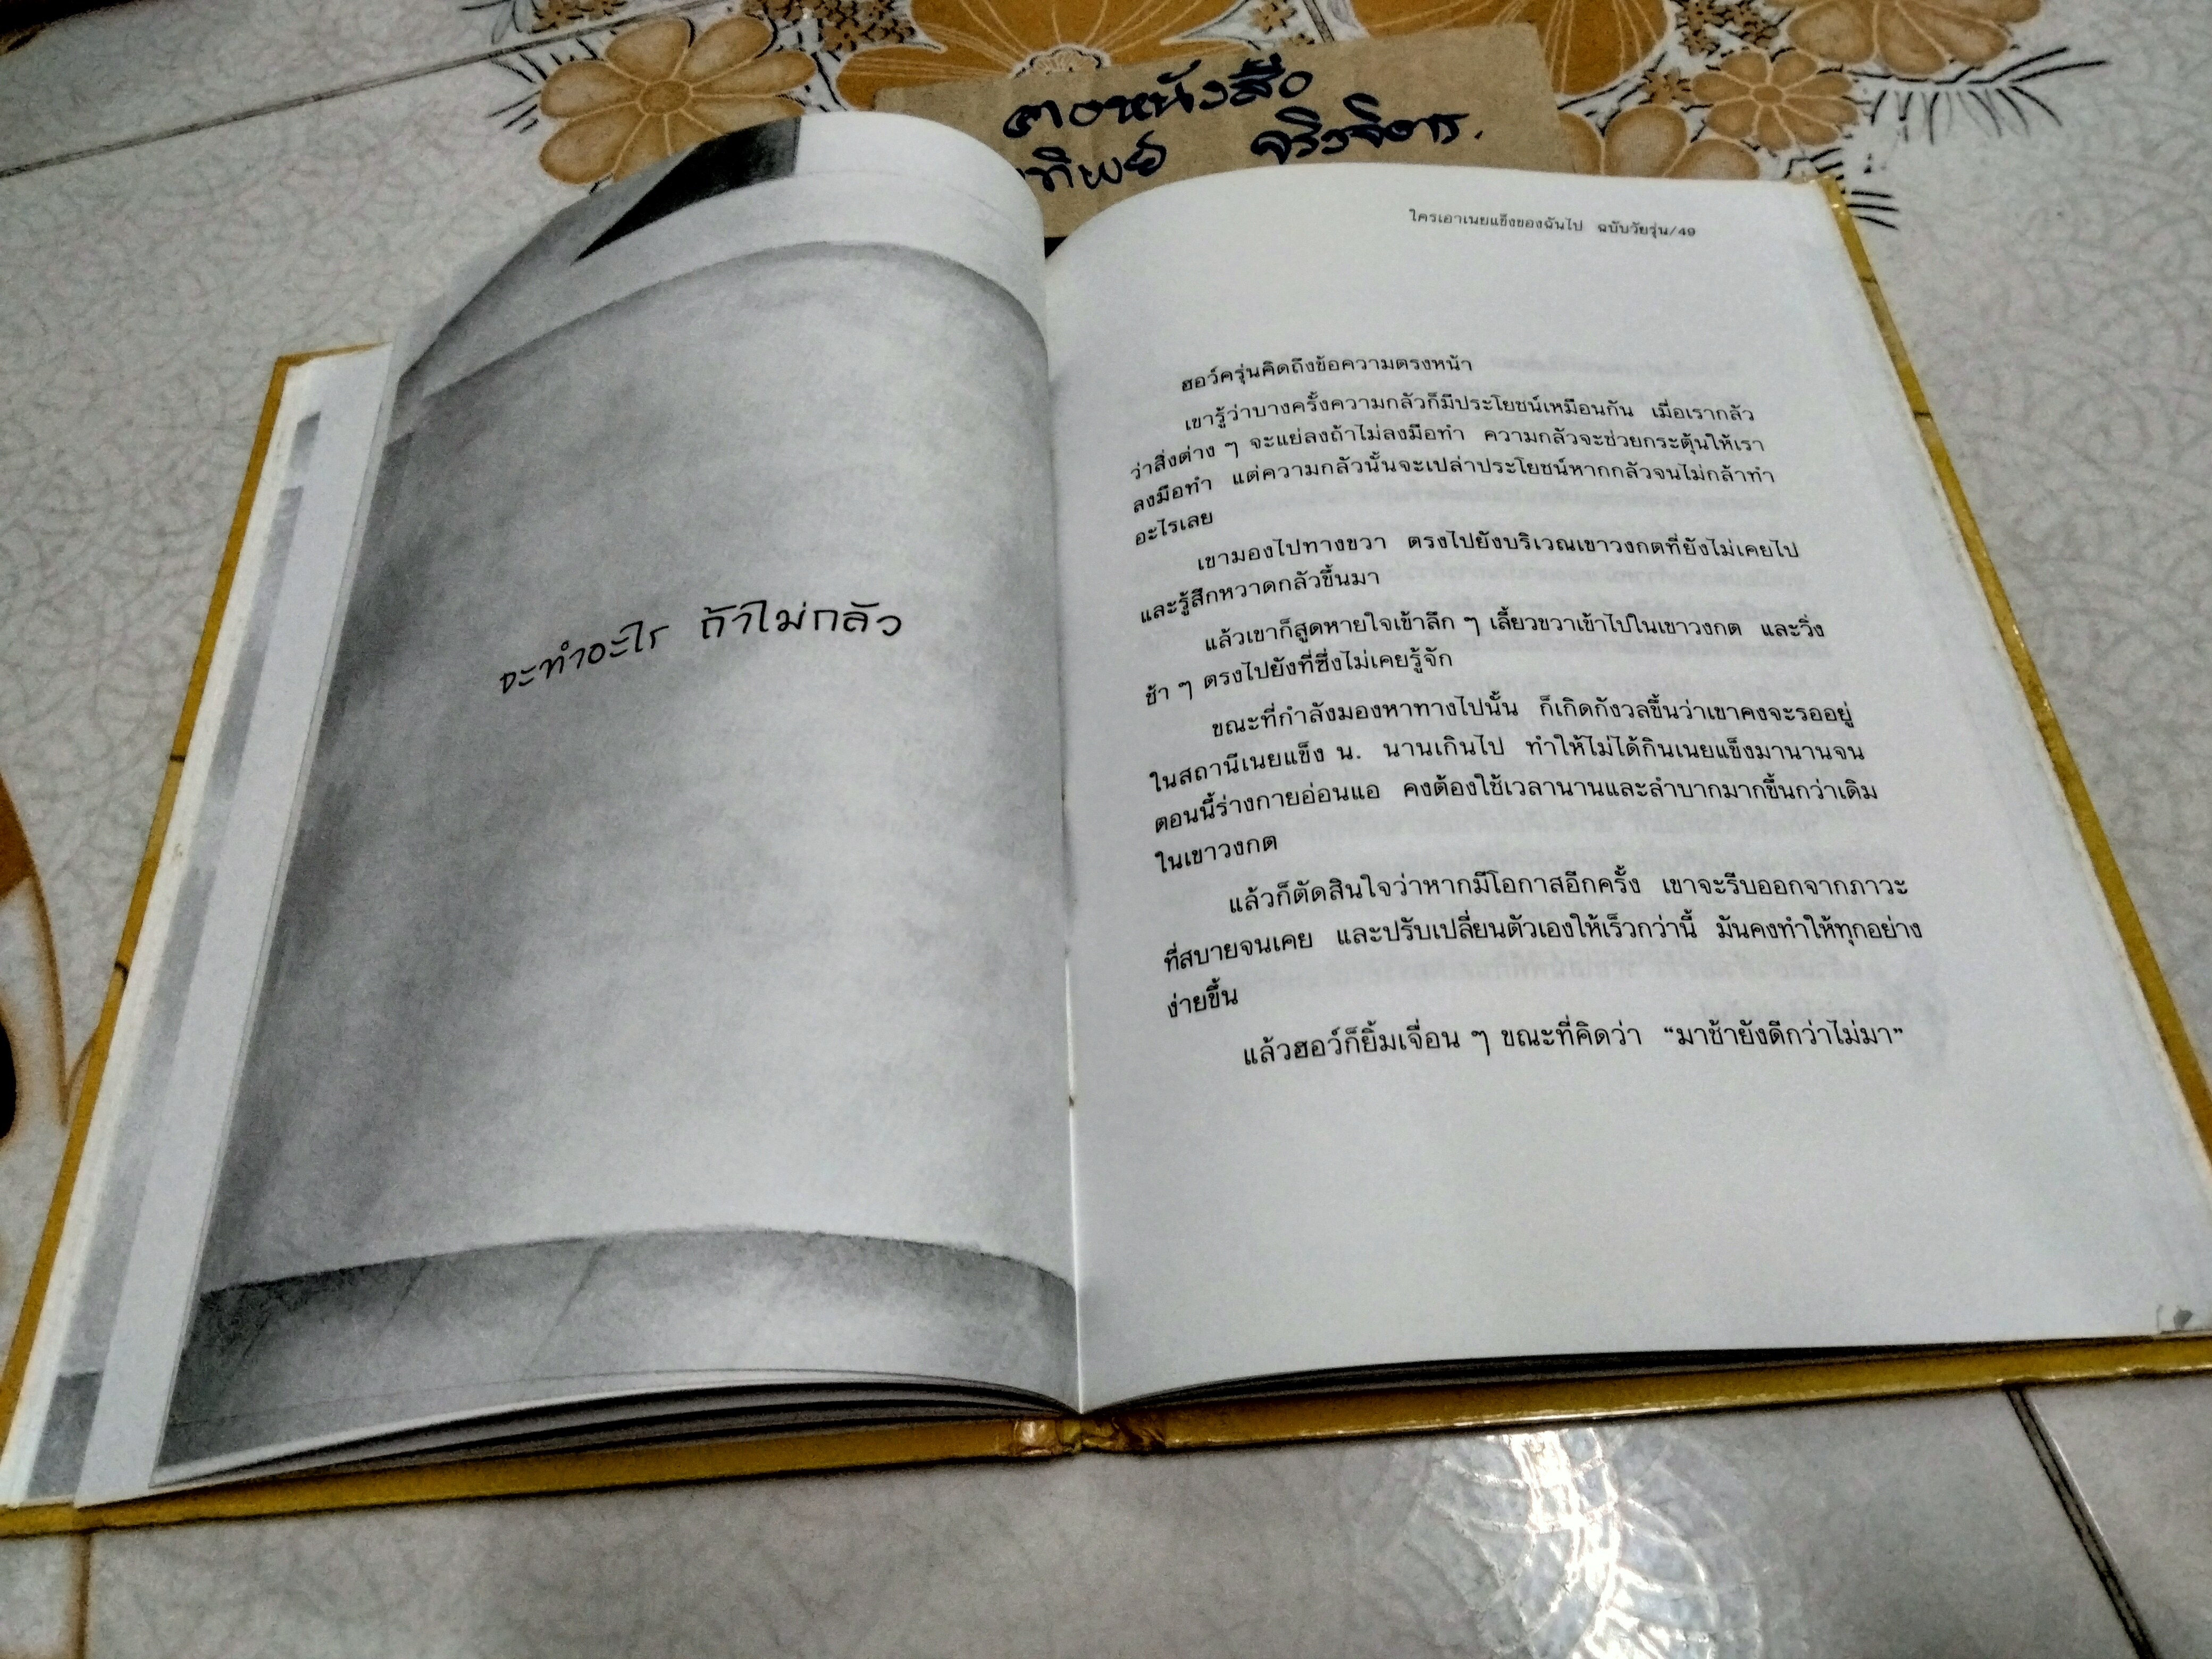 ตงหนังสือ
ทิพย์ จริงจิตร.
จะทำอะไร ถ้าไม่กลัว
ใครเอาเนยแข็งของฉันไป ฉบับวัยรุ่น/49
ฮอว์ครุ่นคิดถึงข้อความตรงหน้า
เขารู้ว่าบางครั้งความกลัวก็มีประโยชน์เหมือนกัน เมื่อเรากลัว
ว่าสิ่งต่าง ๆ จะแย่ลงถ้าไม่ลงมือทำ ความกลัวจะช่วยกระตุ้นให้เรา
ลงมือทำ แต่ความกลัวนั้นจะเปล่าประโยชน์หากกลัวจนไม่กล้าทำ
อะไรเลย
เขามองไปทางขวา ตรงไปยังบริเวณเขาวงกตที่ยังไม่เคยไป
และรู้สึกหวาดกลัวขึ้นมา
แล้วเขาก็สูดหายใจเข้าลึก ๆ เลี้ยวขวาเข้าไปในเขาวงกต และวิ่ง
ช้า ๆ ตรงไปยังที่ซึ่งไม่เคยรู้จัก
ขณะที่กำลังมองหาทางไปนั้น ก็เกิดกังวลขึ้นว่าเขาคงจะรออยู่
ในสถานีเนยแข็ง น. นานเกินไป ทำให้ไม่ได้กินเนยแข็งมานานจน
ตอนนี้ร่างกายอ่อนแอ คงต้องใช้เวลานานและลำบากมากขึ้นกว่าเดิม
ในเขาวงกต
แล้วก็ตัดสินใจว่าหากมีโอกาสอีกครั้ง เขาจะรีบออกจากภาวะ
ที่สบายจนเคย และปรับเปลี่ยนตัวเองให้เร็วกว่านี้ มันคงทำให้ทุกอย่าง
ง่ายขึ้น
แล้วฮอว์ก็ยิ้มเจื่อน ๆ ขณะที่คิดว่า “มาช้ายังดีกว่าไม่มา”